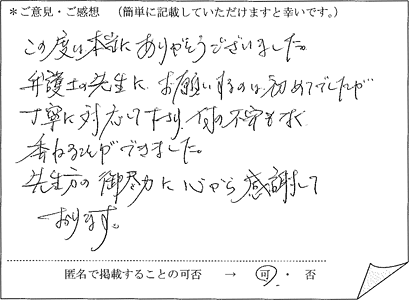 ＊ご意見・ご感想　（簡単に記載していただけますと幸いです。）
この度は本当にありがとうございました。
弁護士の先生に お願いするのは 初めてでしたが
丁寧に対応して下さり、何の不安もなく
委ねることができました。
先生方の御尽力に 心から感謝して
おります。
匿名で掲載することの可否　→　可 ・ 否